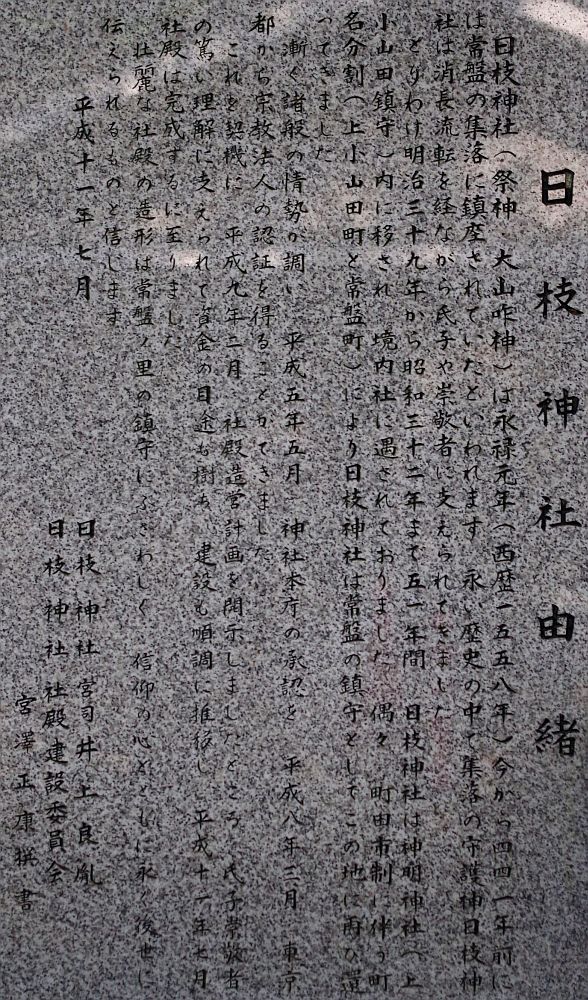 日枝神社由緒
日枝神社（祭神　大山咋神）は永禄元年（西歴一五五八年）今から四四一年前に
は常盤の集落に鎮座されていたといわれます　永い歴史の中で集落の守護神日枝神
社は消長流転を経ながら氏子や崇敬者に支えられてきました
とりわけ明治三十九年から昭和三十二年まで五一年間　日枝神社は神明神社（上
小山田鎮守）内に移され　境内社に遇されておりました　偶々　町田市制に伴う町
名分割（上小山田町と常盤町）により日枝神社は常盤の鎮守としてこの地に再び還
ってきました
漸く諸般の情勢が調い　平成五年五月　神社本庁の承認を　平成八年三月　東京
都から宗教法人の認証を得ることができました
これを契機に　平成九年二月　社殿造営計画を開示しましたところ　氏子崇敬者
の篤い理解に支えられて資金の目途も樹ち　建設も順調に推移し　平成十一年七月
社殿は完成するに至りました
壮麗な社殿の造形は常盤ノ里の鎮守にふさわしく　信仰の心とともに永く後世に
伝えられるものと信じます
平成十一年七月
日枝神社宮司井上良胤
日枝神社社殿建設委員会
宮澤正康撰書